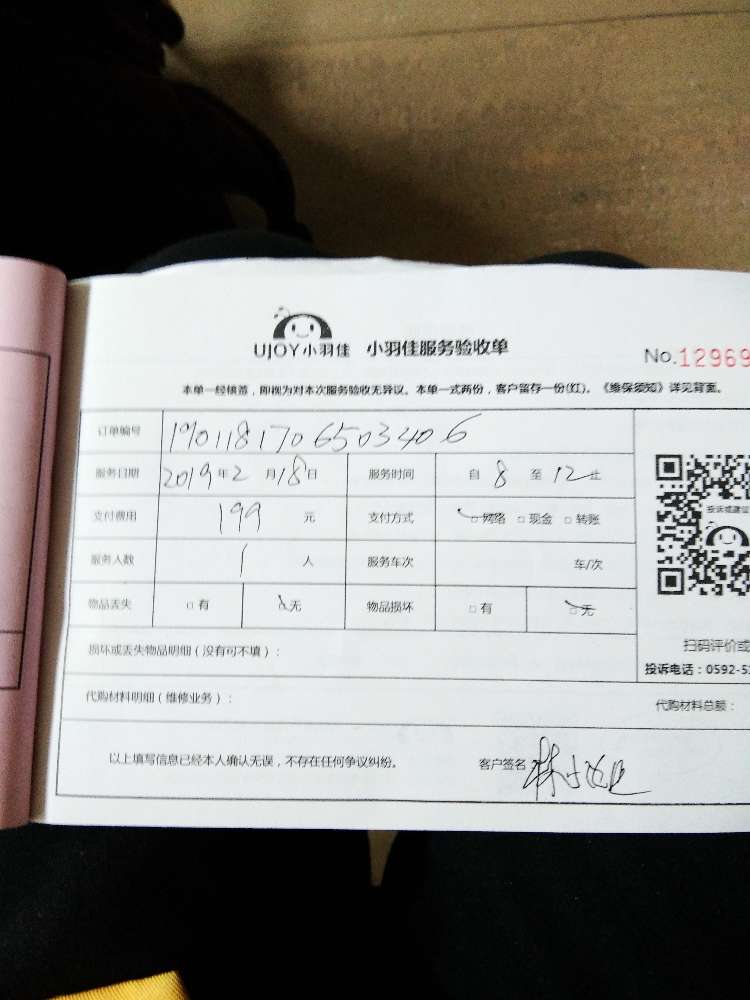 UJOY小羽佳 小羽佳服务验收单
No.12969
本单一经核签，即视为对本次服务验收无异议。本单一式两份，客户留存一份(红)。《维保须知》详见背面。
订单编号 1901181706503406
服务日期 2019年2月18日 服务时间 自8至12止
支付费用 199元 支付方式 □网络 □现金 □转账
投诉或建议
服务人数 1人 服务车次 车/次
物品丢失 □有 □无 物品损坏 □有 □无
扫码评价或
损坏或丢失物品明细（没有可不填）：
投诉电话：0592-5
代购材料明细（维修业务）： 代购材料总额：
以上填写信息已经本人确认无误，不存在任何争议纠纷。 客户签名